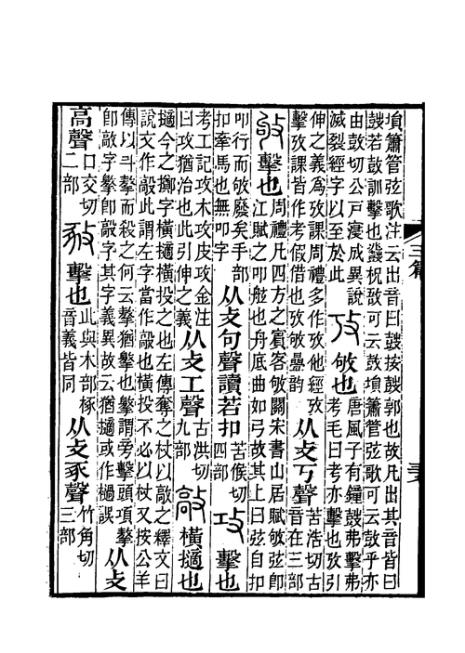 塤簫管弦歌注云出音曰鼓按鼓郭也故凡出其音皆曰
鼓若鼓訓擊也鼗柷敔可云鼓塤簫管弦歌可云鼓乎亦
由鼓切公戸寖成異說
滅裂經字以至於此
攷
敂也
唐風子有鐘鼓弗擊弗
考毛曰考亦擊也攷引
伸之義爲攷課周禮多作攷他經攷
擊攷課皆作考假借也攷敂曡韵
从攴丂聲
苦浩切古
音在三部
敂
擊也
周禮凡四方之賓客敂關宋書山居賦敂弦卽
江賦之叩舷也舟底曲如弓故其上曰弦自扣
叩行而敂廢矣手部
扣牽馬也無叩字
从攴句聲讀若扣
苦候切
四部
攻
擊也
考工記攻木攻皮攻金注
曰攻猶治也此引伸之義
从攴工聲
古洪切
九部
敲
橫擿也
擿今之擲字橫擿橫投之也左傳奪之杖以敲之釋文曰
說文作㲉此謂左字當作㲉也橫投不必以杖又按公羊
傳以斗摮而殺之何云摮猶擊也擊謂旁擊頭項摮
卽敲字擊卽㲉字其字義異故云猶擿或作檛誤
从攴
高聲
口交切
二部
㪣
擊也
此與木部椓
音義皆同
从攴豖聲
竹角切
三部
三篇